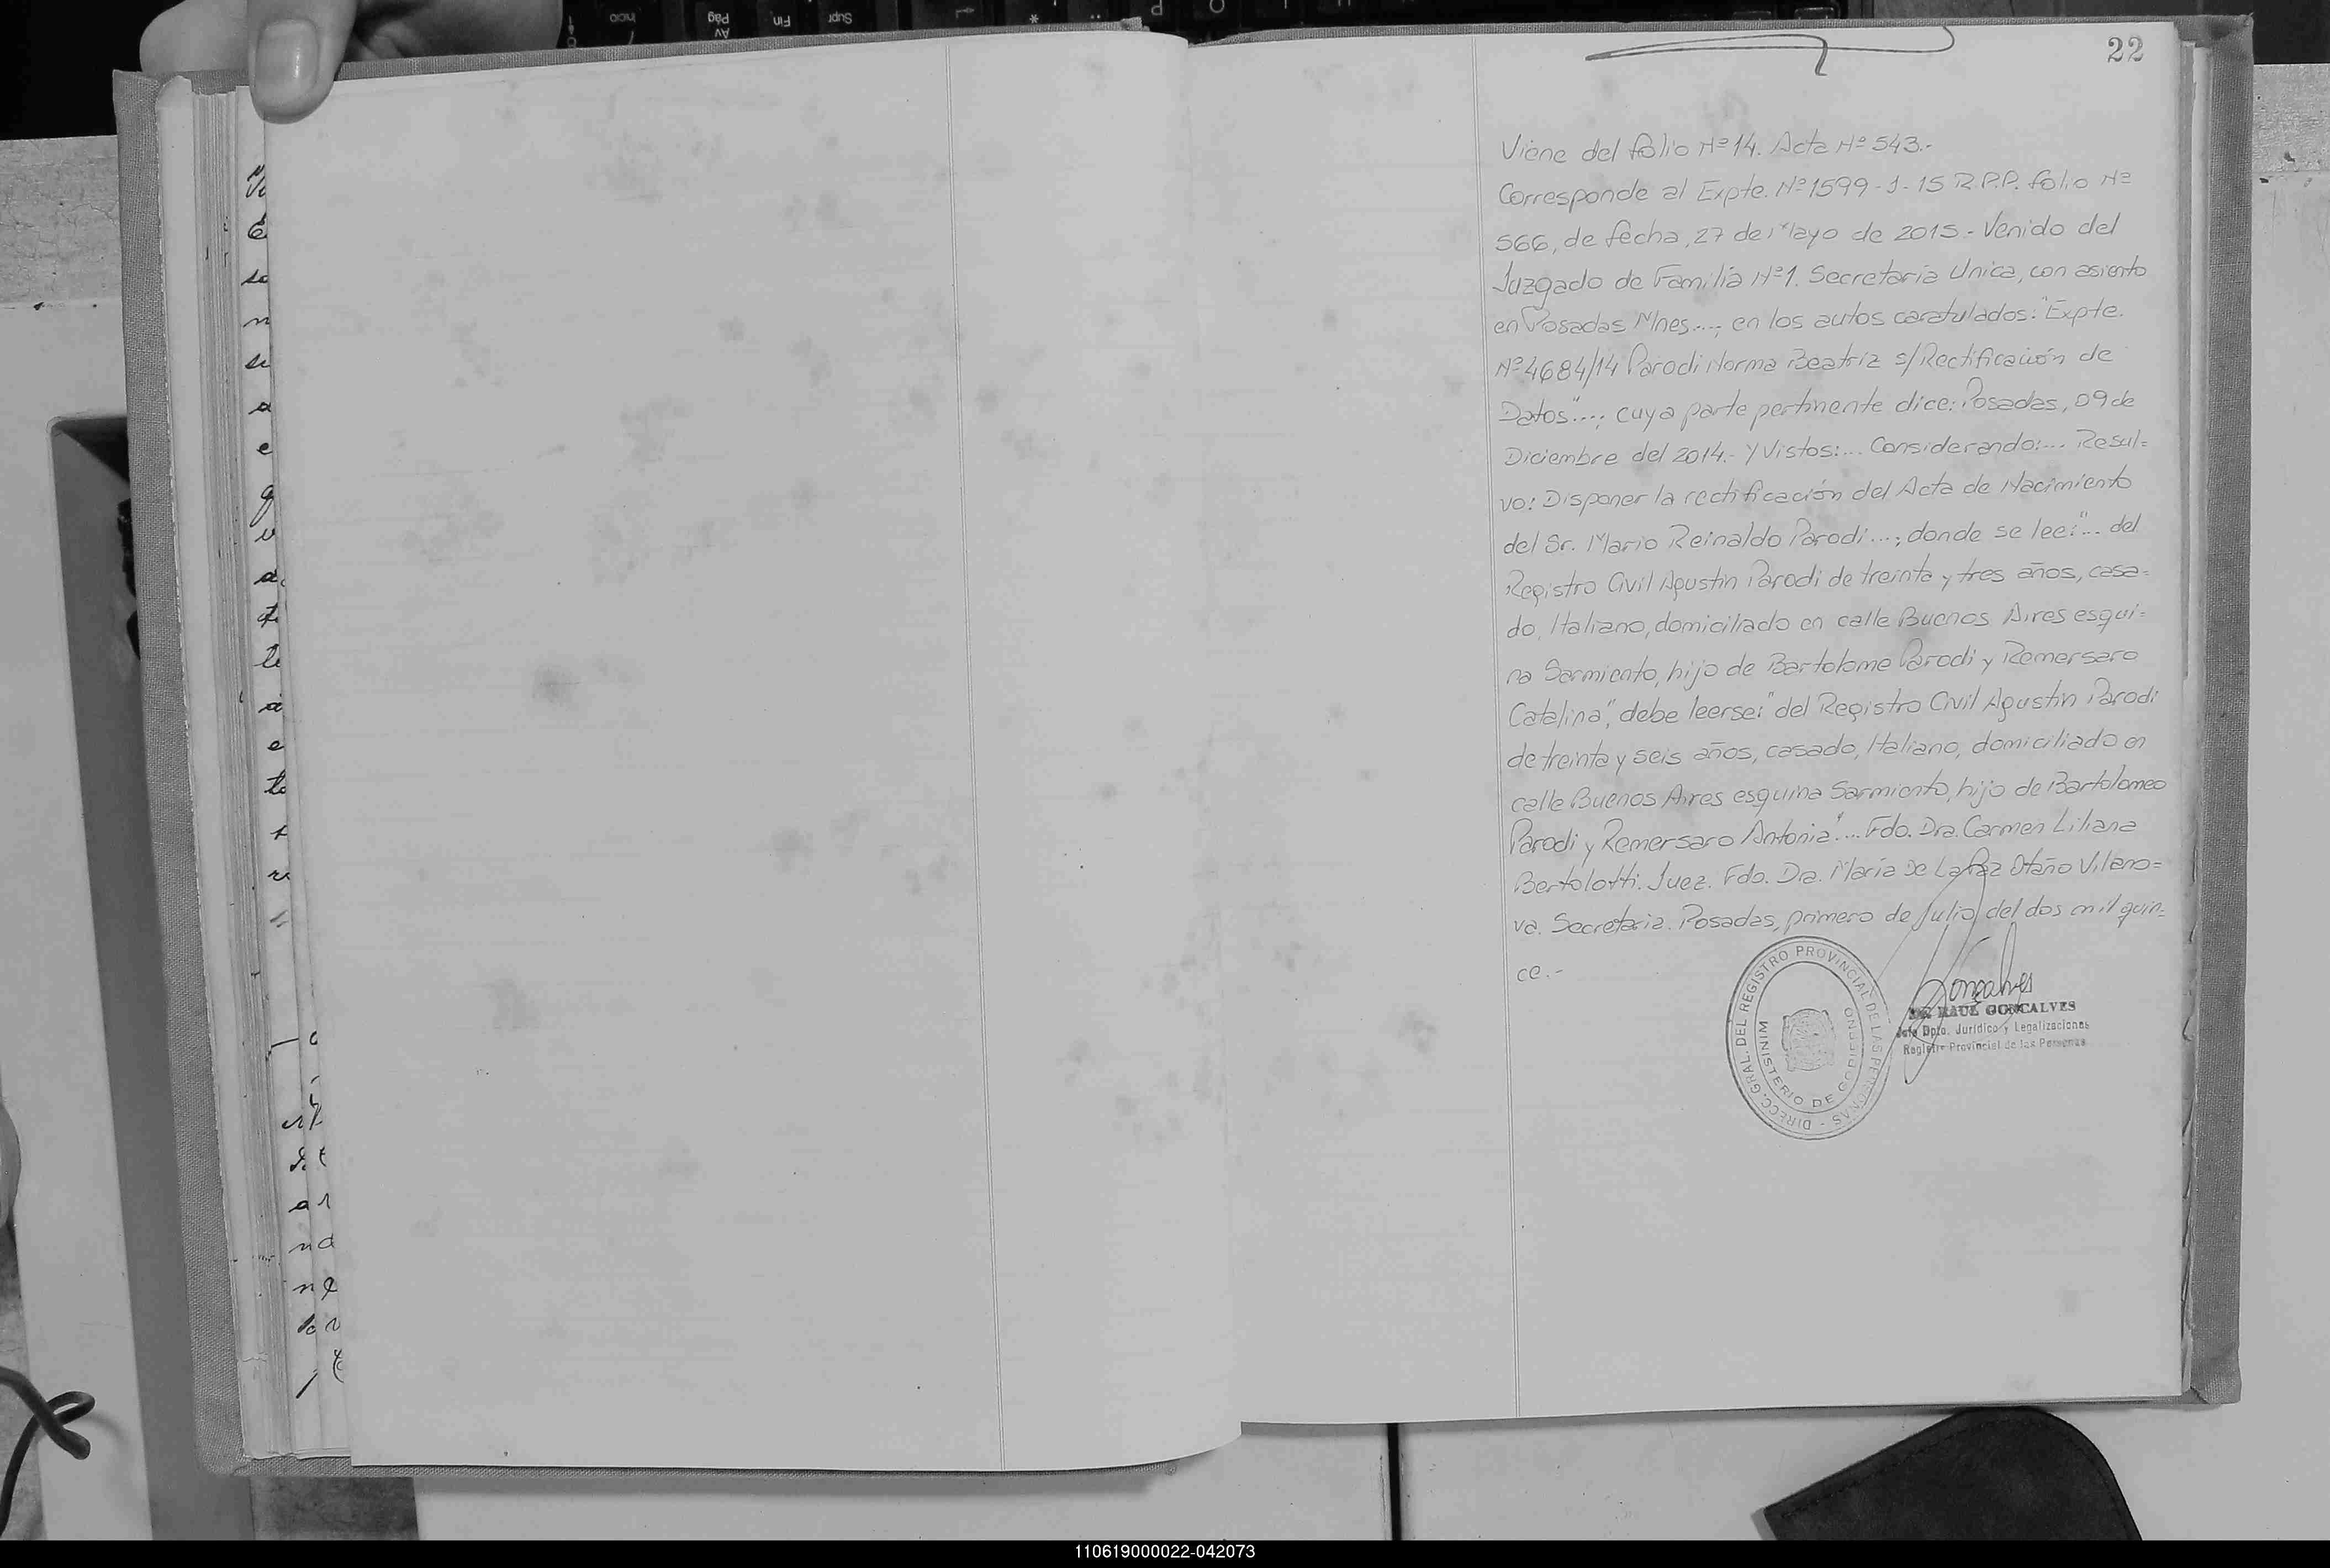 22
Viene del folio Nº 14. Acta Nº 543.-
Corresponde al Expte. Nº 1599-J-15 R.P.P. folio Nº
566, de fecha, 27 de Mayo de 2015.- Venido del
Juzgado de Familia Nº1. Secretaría Unica, con asiento
en Posadas Mnes....; en los autos caratulados: "Expte.
Nº 4684/14 Parodi Norma Beatriz s/Rectificación de
Datos"...; cuya parte pertinente dice: Posadas, 09 de
Diciembre del 2014.- Y Vistos:... Considerando:... Resul=
vo: Disponer la rectificación del Acta de Nacimiento
del Sr. Mario Reinaldo Parodi...; donde se lee: "... del
Registro Civil Agustin Parodi de treinta y tres años, casa=
do, Italiano, domiciliado en calle Buenos Aires esqui=
na Sarmiento, hijo de Bartolome Parodi y Remersaro
Catalina", debe leerse: "del Registro Civil Agustin Parodi
de treinta y seis años, casado, Italiano, domiciliado en
calle Buenos Aires esquina Sarmiento, hijo de Bartolomeo
Parodi y Remersaro Antonia"... Fdo. Dra. Carmen Liliana
Bertolotti. Juez. Fdo. Dra. María De La Paz Otaño Vilano=
va. Secretaria. Posadas, primero de Julio del dos mil quin=
ce.-
DIRECC. GRAL. DEL REGISTRO PROVINCIAL DE LAS PERSONAS -
MINISTERIO DE GOBIERNO
Goncalves
RAUL GONCALVES
Jefe Dpto. Jurídico y Legalizaciones
Registro Provincial de las Personas
110619000022-042073